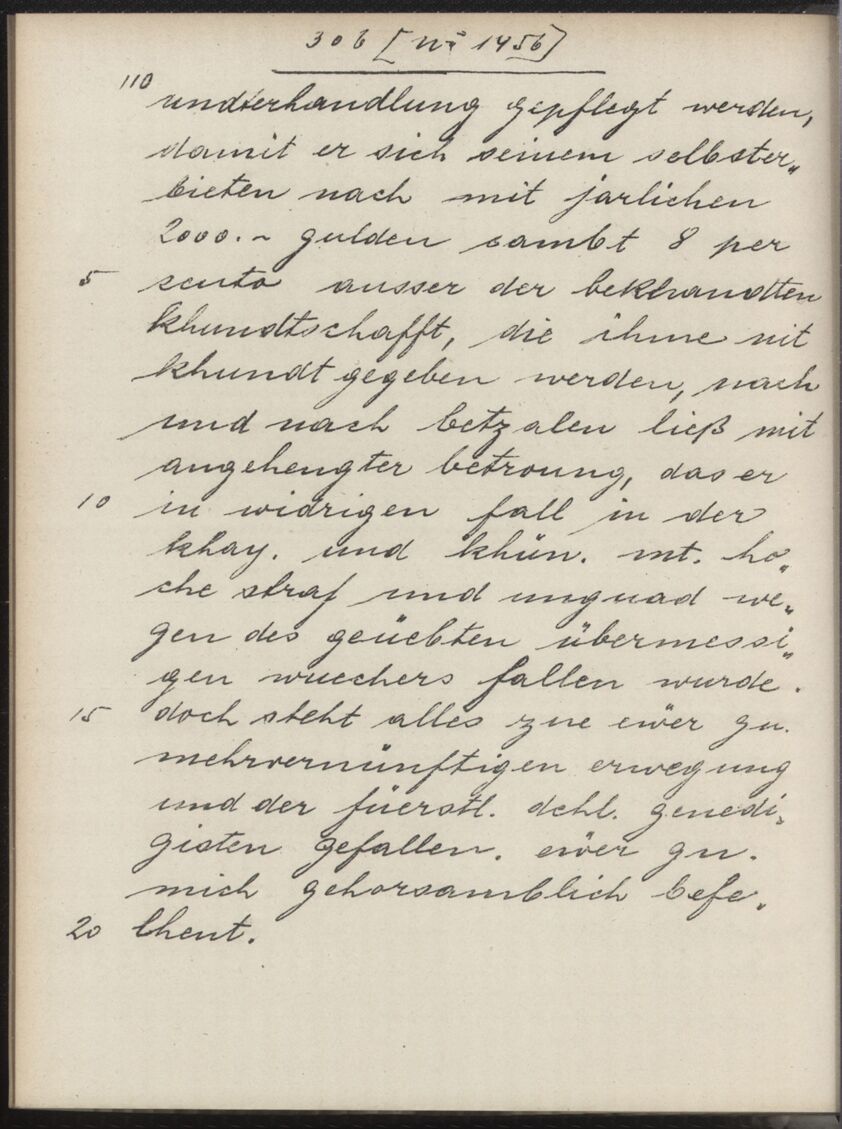 306 [No 1456]
110
undterhandlung gepflegt werden,
damit er sich seinem selbster„
bieten nach mit jarlichen
2000.- gulden sambt 8 per
5 sento ausser der bekhandten
khundtschafft, die ihme nit
khundt gegeben werden, nach
und nach betzalen ließ mit
angehengter betroung, das er
10 in widrigen fall in der
khay. und khün. mt. ho„
che straf und ungnad we„
gen des geüebten übermessi„
gen wuechers fallen wurde.
15 doch steht alles zue ewer gn.
mehrvernünftigen erwegung
und der füerstl. dchl. genedi„
gisten gefallen. ewer gn.
mich gehorsamblich befe„
20 lhent.